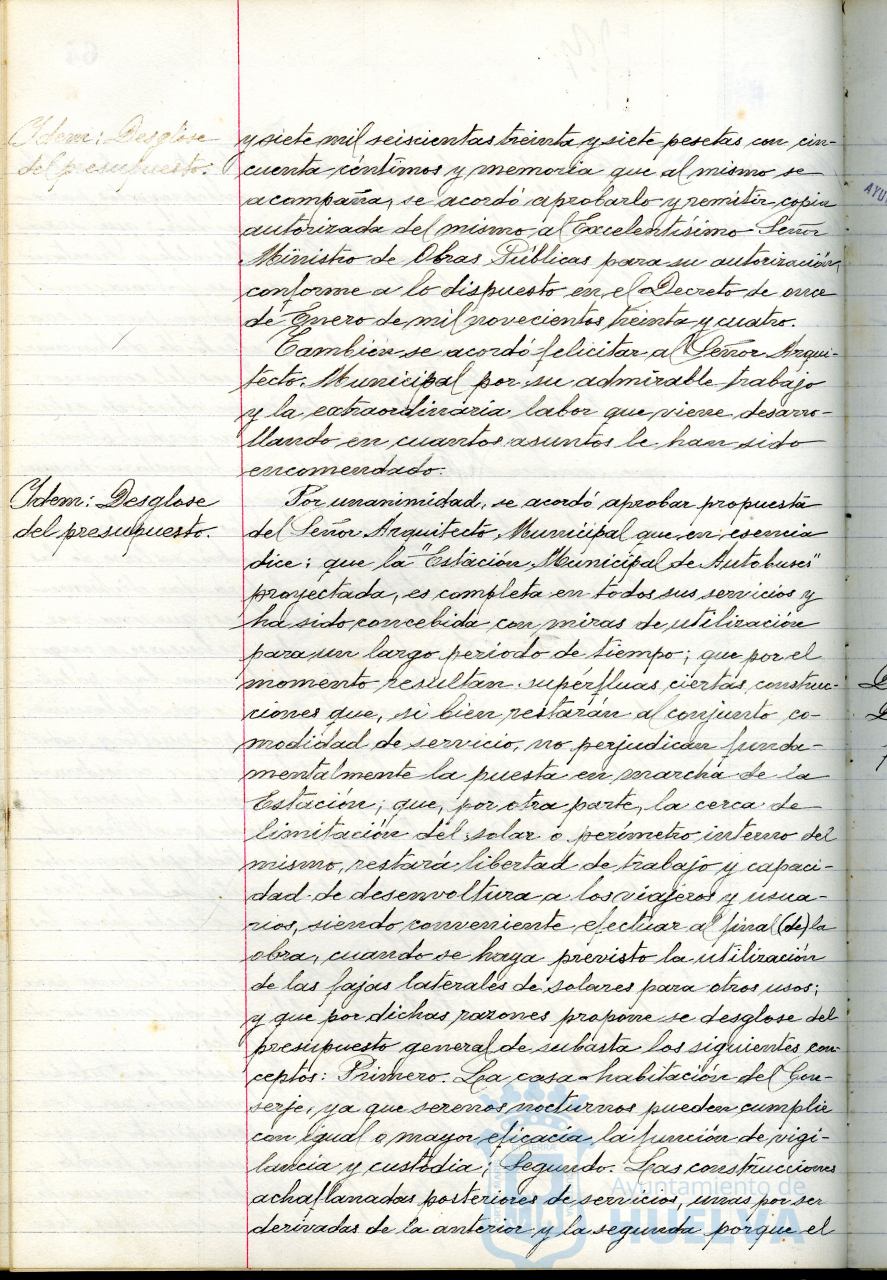 Idem: Desglose
del presupuesto.
y siete mil seiscientas treinta y siete pesetas con cin-
cuenta céntimos y memoria que al mismo se
acompaña, se acordó aprobarlo y remitir copia
autorizada del mismo al Excelentísimo Señor
Ministro de Obras Públicas para su autorización,
conforme a lo dispuesto en el Decreto de once
de Enero de mil novecientos treinta y cuatro.
Tambien se acordó felicitar al Señor Arqui-
tecto Municipal por su admirable trabajo
y la extraordinaria labor que viene desarro-
llando en cuantos asuntos le han sido
encomendado.
Idem: Desglose
del presupuesto.
Por unanimidad, se acordó aprobar propuesta
del Señor Arquitecto Municipal que en esencia
dice: que la "Estación Municipal de Autobuses"
proyectada, es completa en todos sus servicios y
ha sido concebida con miras de utilización
para un largo periodo de tiempo; que por el
momento resultan supérfluas ciertas construc-
ciones que, si bien restarán al conjunto co-
modidad de servicio, no perjudican funda-
mentalmente la puesta en marcha de la
Estación; que, por otra parte, la cerca de
limitación del solar o perímetro interno del
mismo, restará libertad de trabajo y capaci-
dad de desenvoltura a los viajeros y usua-
rios, siendo conveniente efectuar al final (de) la
obra, cuando se haya previsto la utilización
de las fajas laterales de solares para otros usos;
y que por dichas razones propone se desglose del
presupuesto general de subasta los siguientes con-
ceptos: Primero. La casa-habitación del Con-
serje, ya que serenos nocturnos pueden cumplir
con igual o mayor eficacia la función de vigi-
lancia y custodia; Segundo. Las construcciones
achaflanadas posteriores de servicios, unas por ser
derivadas de la anterior y la segunda porque el
Ayuntamiento de
HUELVA